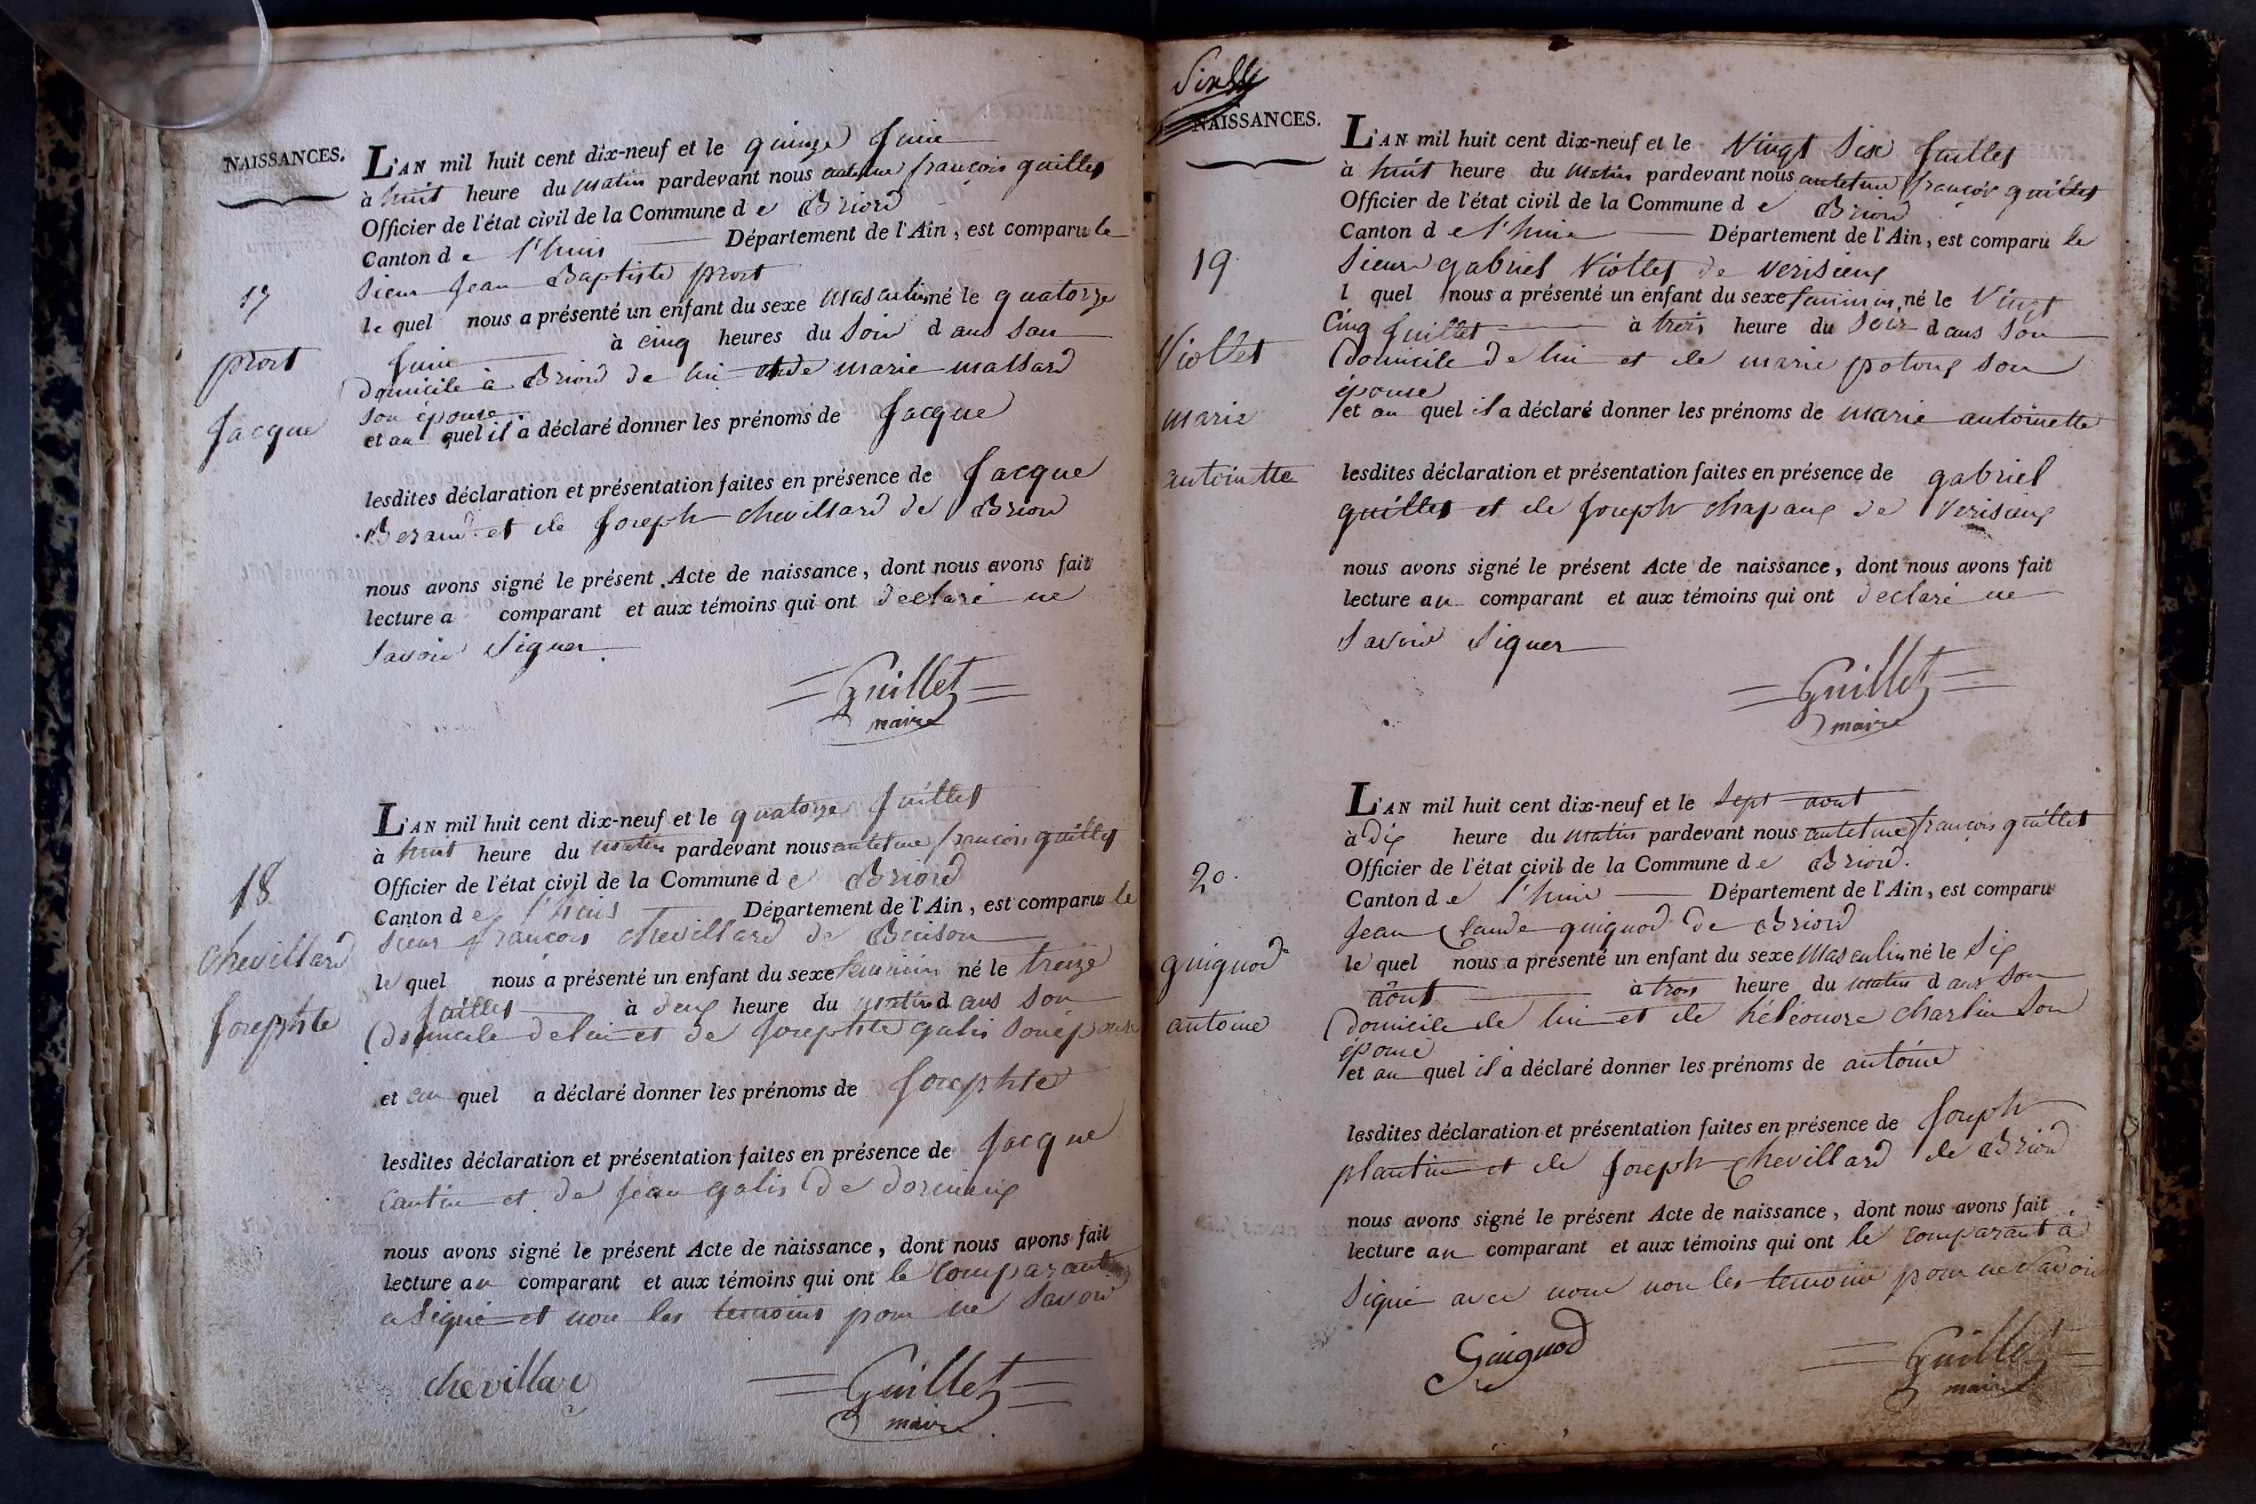 NAISSANCES.
L'AN mil huit cent dix-neuf et le quinze Juin
à huit heure du matin pardevant nous anthelme françois guillet
Officier de l'état civil de la Commune d e Briord
Canton d e l'huis Département de l'Ain, est comparu le
17
Sieur Jean Baptiste prost
le quel nous a présenté un enfant du sexe masculin né le quatorze
prost
Juin à cinq heures du Soir dans Son
domicile à Briord de lui et de marie massard
Jacque
Son épouse
et au quel il a déclaré donner les prénoms de Jacque
lesdites déclaration et présentation faites en présence de Jacque
Beraud et de Joseph chevillard de Briord
nous avons signé le présent Acte de naissance, dont nous avons fait
lecture a comparant et aux témoins qui ont declaré ne
Savoir Signer
Guillet
maire
L'AN mil huit cent dix-neuf et le quatorze Juillet
à huit heure du matin pardevant nous anthelme françois guillet
18
Officier de l'état civil de la Commune d e Briord
Canton d e l'huis Département de l'Ain, est comparu le
chevillard
Sieur françois chevillard de
le quel nous a présenté un enfant du sexe feminin né le treize
Josephte
Juillet à deux heure du matin dans Son
Domicile de lui et de Josephte galis Son épouse
et au quel a déclaré donner les prénoms de Josephte
lesdites déclaration et présentation faites en présence de Jacque
Cantin et de Jean galis de
nous avons signé le présent Acte de naissance, dont nous avons fait
lecture au comparant et aux témoins qui ont le comparant
a Signé et non les temoins pour ne Savoir
chevillar
Guillet
maire
NAISSANCES.
L'AN mil huit cent dix-neuf et le Vingt Six Juillet
à huit heure du matin pardevant nous anthelme françois guillet
Officier de l'état civil de la Commune d e Briord
Canton d e l'huis Département de l'Ain, est comparu le
19
Sieur gabriel Viollet de verisieux
l quel nous a présenté un enfant du sexe feminin né le Vingt
Cinq Juillet à trois heure du Soir dans Son
Viollet
Domicile de lui et de marie Son
épouse
marie
et au quel il a déclaré donner les prénoms de marie antoinette
antoinette
lesdites déclaration et présentation faites en présence de gabriel
guillet et de Joseph Chapaux de Verisieux
nous avons signé le présent Acte de naissance, dont nous avons fait
lecture au comparant et aux témoins qui ont declaré ne
Savoir Signer
Guillet
maire
L'AN mil huit cent dix-neuf et le Sept aout
à dix heure du matin pardevant nous anthelme françois guillet
Officier de l'état civil de la Commune d e Briord.
20.
Canton d e l'huis Département de l'Ain, est comparu
Jean Claude guignod de Briord
guignod
le quel nous a présenté un enfant du sexe Masculin né le Six
aôut à trois heure du matin dans Son
antoine
Domicile de lui et de héléonore charlin Son
épouse
et au quel il a déclaré donner les prénoms de antoine
lesdites déclaration et présentation faites en présence de Joseph
plantin et de Joseph Chevillard de Briord
nous avons signé le présent Acte de naissance, dont nous avons fait
lecture au comparant et aux témoins qui ont le comparant a
Signé avec nous non les temoins pour ne Savoir
Guignod
Guillet
maire